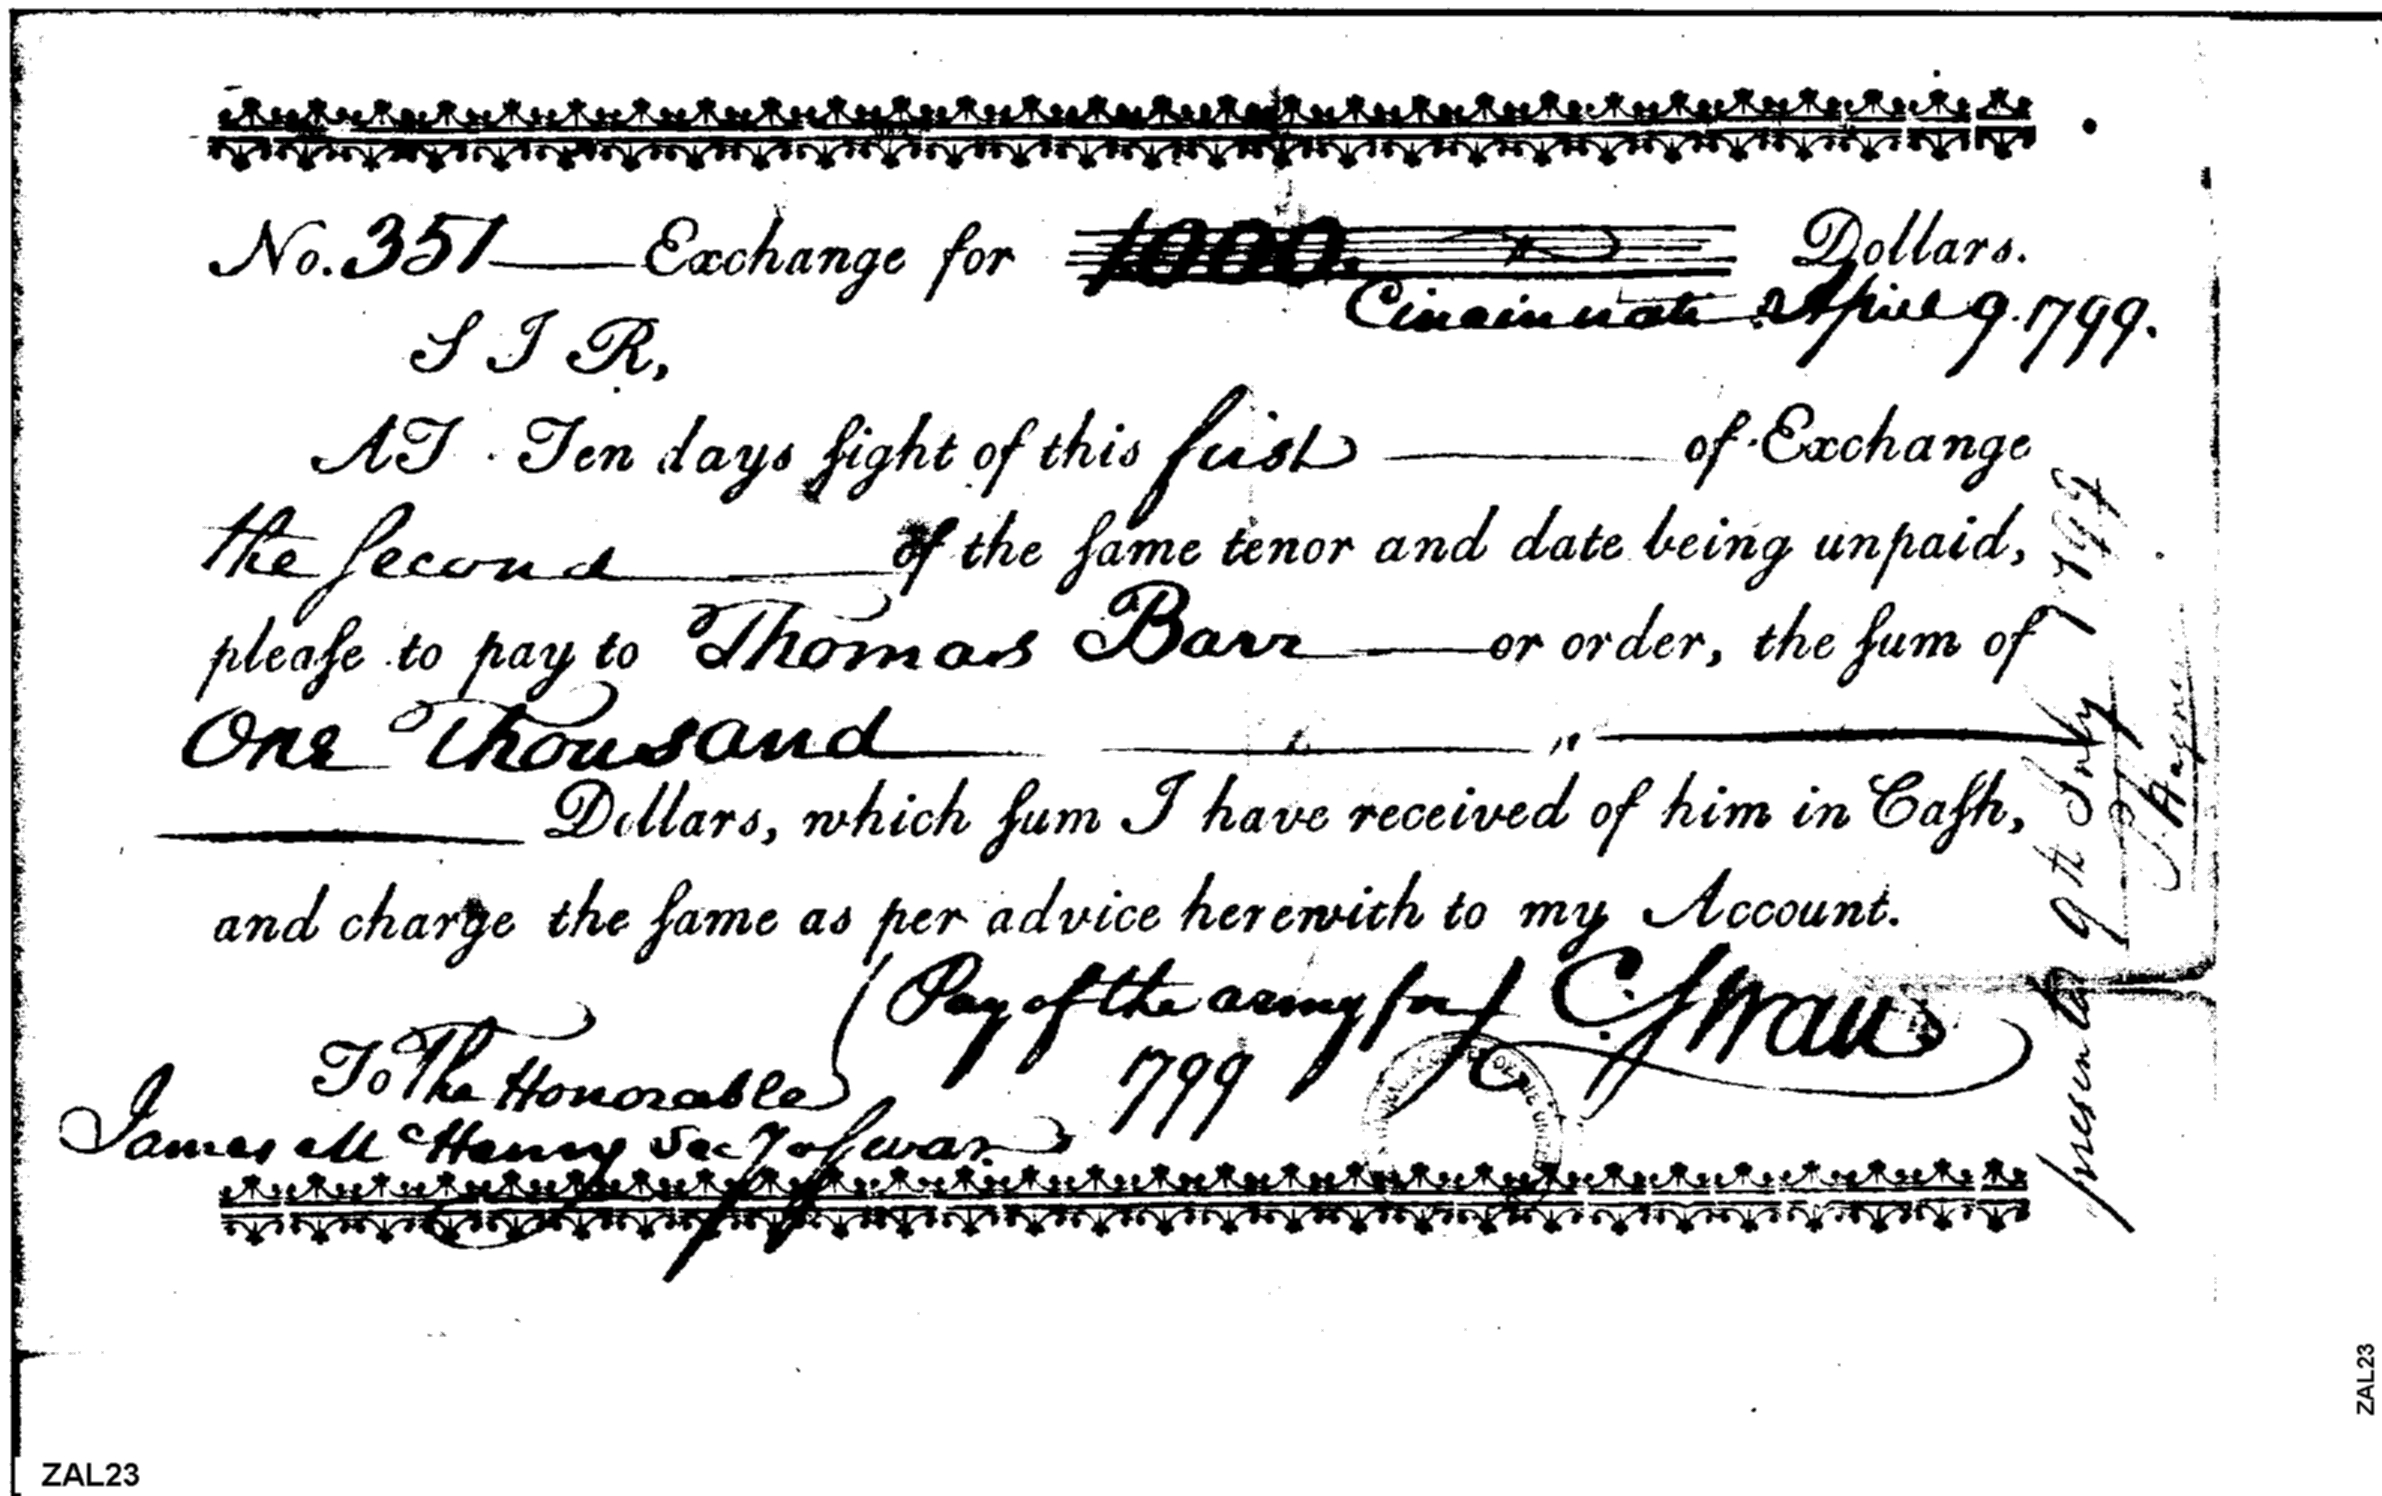 No. 351 Exchange for 1000 Dollars.
Cincinnati April 9. 1799.
S I R,
AT Ten days ſight of this first of Exchange
the ſecond of the ſame tenor and date being unpaid,
pleaſe to pay to Thomas Barr or order, the ſum of
One Thousand
Dollars, which ſum I have received of him in Caſh,
and charge the ſame as per advice herewith to my Account.
Pay of the army for C. Swan
1799
To The Honorable
James McHenry Secy of war.
presented 9th July 1799
ZAL23
ZAL23